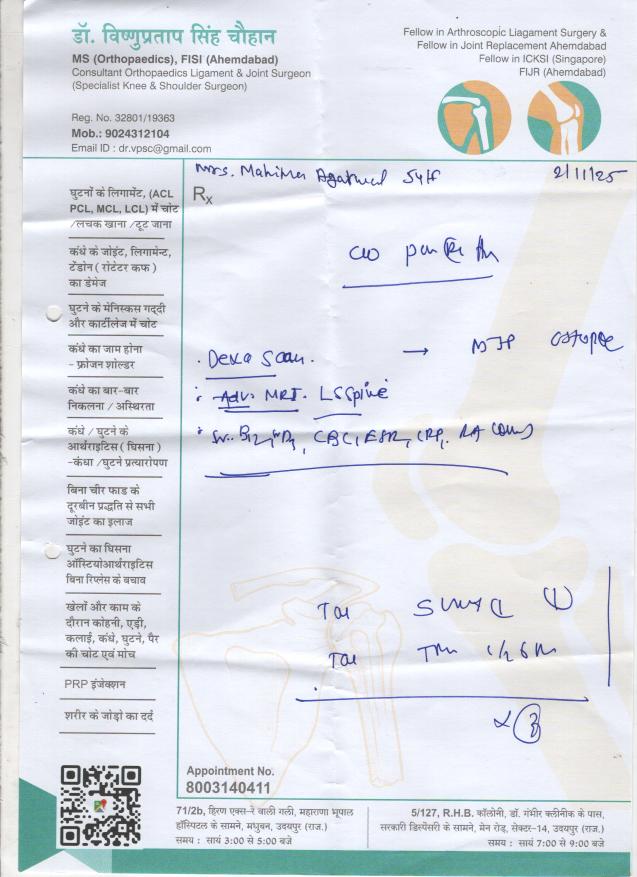 डॉ. विष्णुप्रताप सिंह चौहान
MS (Orthopaedics), FISI (Ahemdabad)
Consultant Orthopaedics Ligament & Joint Surgeon
(Specialist Knee & Shoulder Surgeon)
Reg. No. 32801/19363
Mob.: 9024312104
Email ID : dr.vpsc@gmail.com
Fellow in Arthroscopic Liagament Surgery &
Fellow in Joint Replacement Ahemdabad
Fellow in ICKSI (Singapore)
FIJR (Ahemdabad)
Mrs. Mahima Agarwal 54/F
2/11/25
Rx
घुटनों के लिगामेंट, (ACL
PCL, MCL, LCL) में चोट
/लचक खाना /टूट जाना
कंधे के जोइंट, लिगामेन्ट,
टेंडोन ( रोटेटर कफ )
का डेमेज
घुटने के मेनिस्कस गद्दी
और कार्टीलेज में चोट
कंधे का जाम होना
- फ्रोजन शोल्डर
कंधे का बार-बार
निकलना / अस्थिरता
कंधे / घुटने के
आर्थराइटिस ( घिसना )
-कंधा /घुटने प्रत्यारोपण
बिना चीर फाड के
दूरबीन प्रद्धति से सभी
जोइंट का इलाज
घुटने का घिसना
ऑस्टियोआर्थराइटिस
बिना रिप्लेस के बचाव
खेलों और काम के
दौरान कोहनी, एड़ी,
कलाई, कंधे, घुटने, पैर
की चोट एवं मोच
PRP इंजेक्शन
शरीर के जोड़ो का दर्द
Dexa Scan. →
Adv. MRI. LSSpine
B12, D3, CBC, ESR, CRP, RA
Appointment No.
8003140411
71/2b, हिरण एक्स-रे वाली गली, महाराणा भूपाल
हॉस्पिटल के सामने, मधुबन, उदयपुर (राज.)
समय : सायं 3:00 से 5:00 बजे
5/127, R.H.B. कॉलोनी, डॉ. गंभीर क्लीनीक के पास,
सरकारी डिस्पेंसरी के सामने, मेन रोड, सेक्टर-14, उदयपुर (राज.)
समय : सायं 7:00 से 9:00 बजे